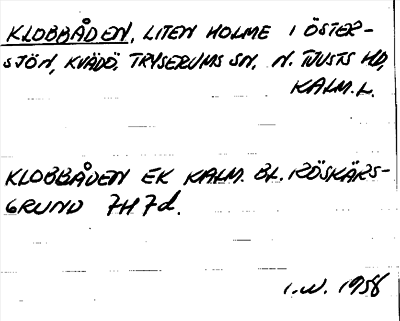 KLOBBÅDEN, LITEN HOLME I ÖSTER-
SJÖN, KVÄDÖ, TRYSERUMS SN, N. TJUSTS HD,
KALM. L.
KLOBBÅDEN EK KALM. BL. RÖSKÄRS-
GRUND 7H7d.
I.W. 1958